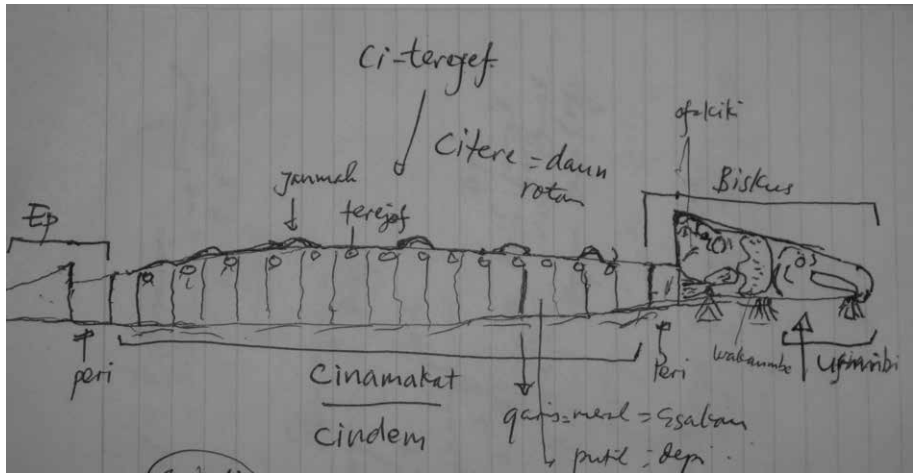 Ci-terejef
Citere = daun
rotan
ofokiki
Biskus
Janmah
terejef
Ep
peri
Cinamakat
cindem
peri
wakanimbe
garis=merah = asakam
putih = depi